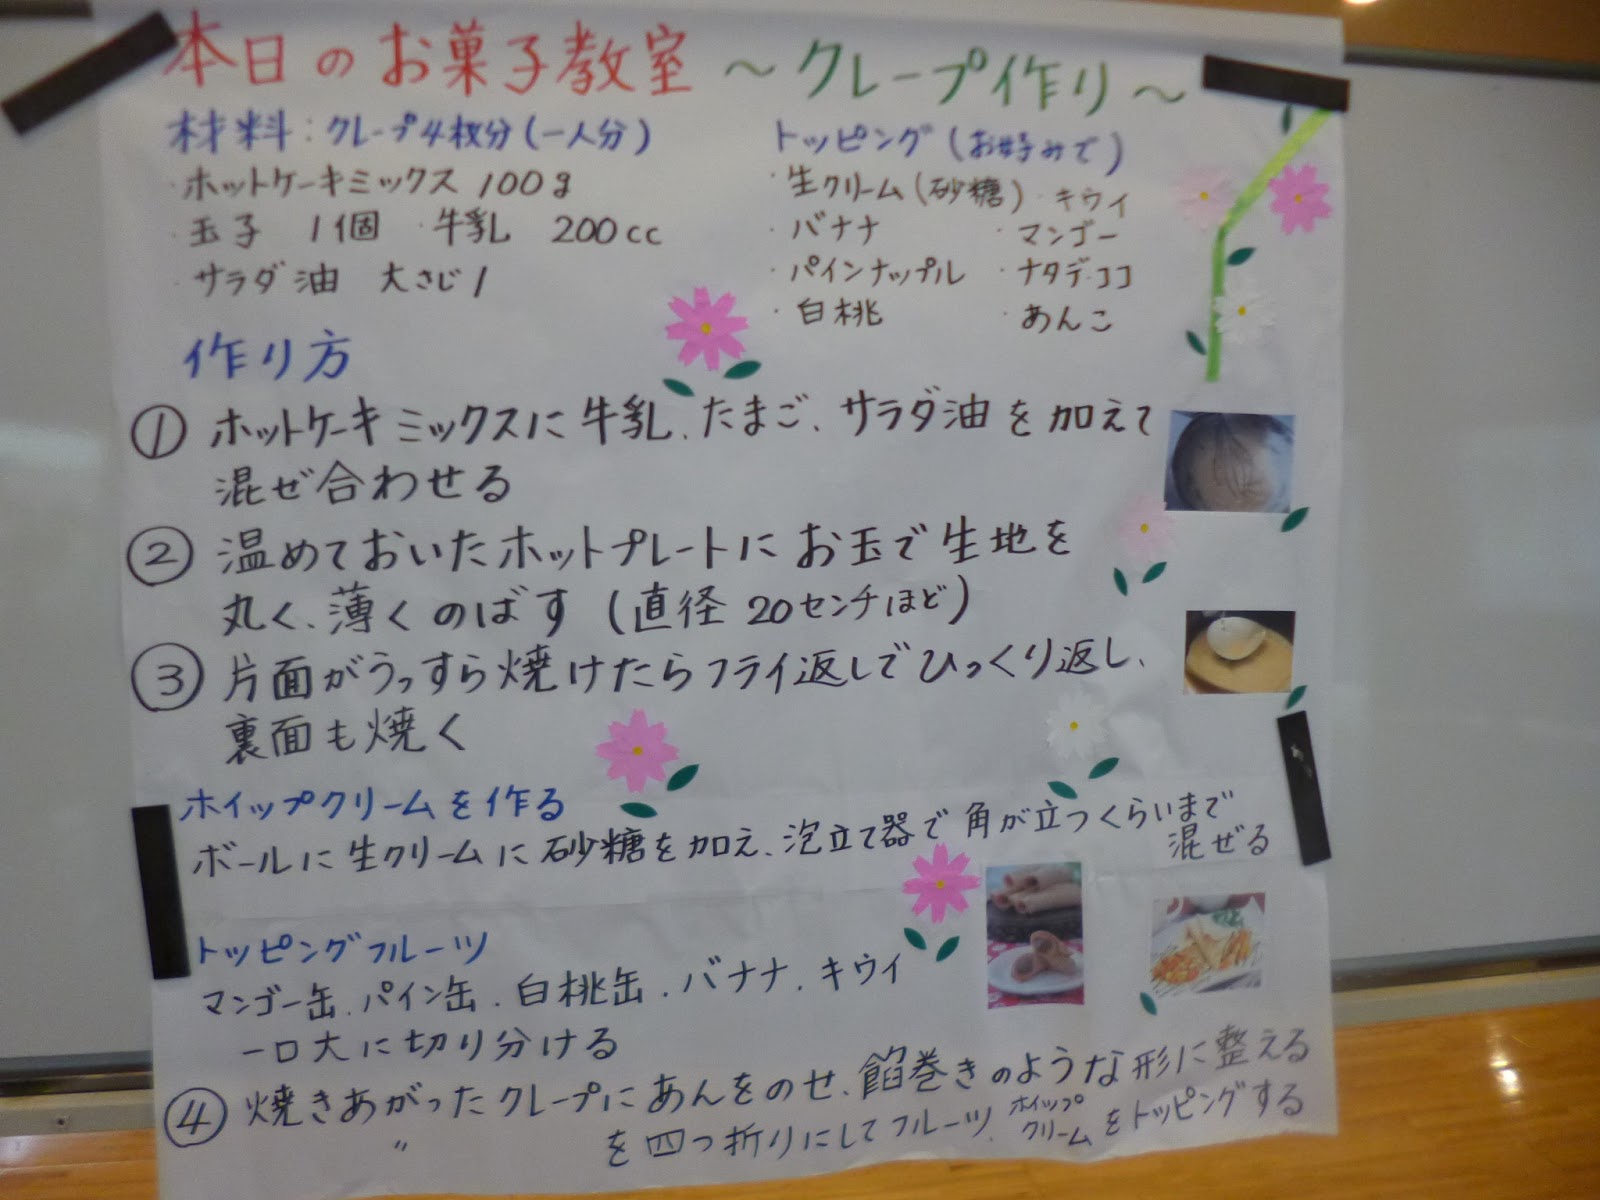 本日のお菓子教室 ～クレープ作り～
材料：クレープ4枚分(一人分)
・ホットケーキミックス 100g
・玉子 1個 ・牛乳 200cc
・サラダ油 大さじ1
トッピング(お好みで)
・生クリーム(砂糖)・キウイ
・バナナ ・マンゴー
・パインナップル ・ナタデ・ココ
・白桃 ・あんこ
作り方
① ホットケーキミックスに牛乳、たまご、サラダ油を加えて
混ぜ合わせる
② 温めておいたホットプレートにお玉で生地を
丸く、薄くのばす (直径 20センチほど)
③ 片面がうっすら焼けたらフライ返しでひっくり返し、
裏面も焼く
ホイップクリームを作る
ボールに生クリームに砂糖を加え、泡立て器で角が立つくらいまで
混ぜる
トッピングフルーツ
マンゴー缶、パイン缶、白桃缶、バナナ、キウイ
一口大に切り分ける
④ 焼きあがったクレープにあんをのせ、餡巻きのような形に整える
〃 を四つ折りにしてフルーツ、ホイップクリームをトッピングする